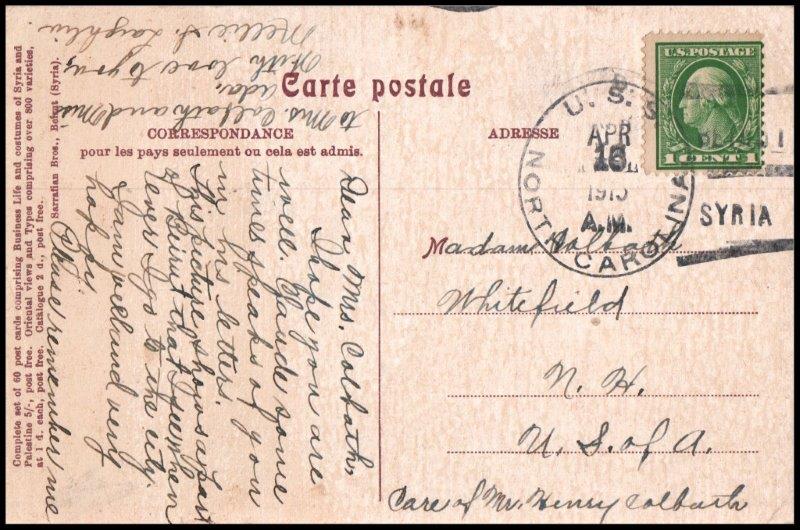 Carte postale
CORRESPONDANCE
pour les pays seulement ou cela est admis.
ADRESSE
U.S. POSTAGE
1 CENT 1
U. S. S.
NORTH CAROLINA
APR
16
1915
A.M.
SYRIA
Madame Colbath
Whitefield
N. H.
U. S. of A.
Care of Mr. Henry Colbath
Dear Mrs. Colbath,
I hope you are
well. Claude some
times speaks of you
in his letters.
This picture shows a part
of Beirut that I see when
ever I go to the city.
I am well and very
happy.
Please remember me
to Mrs Colbath and Miss
Ada.
With love to you,
Nellie S.
Complete set of 60 post cards comprising Business Life and costumes of Syria and
Palestine 5/-, post free. Oriental views and Types comprising over 800 varieties,
at 1 d. each, post free. Catalogue 2 d., post free.
Sarrafian Bros., Beirut (Syria).